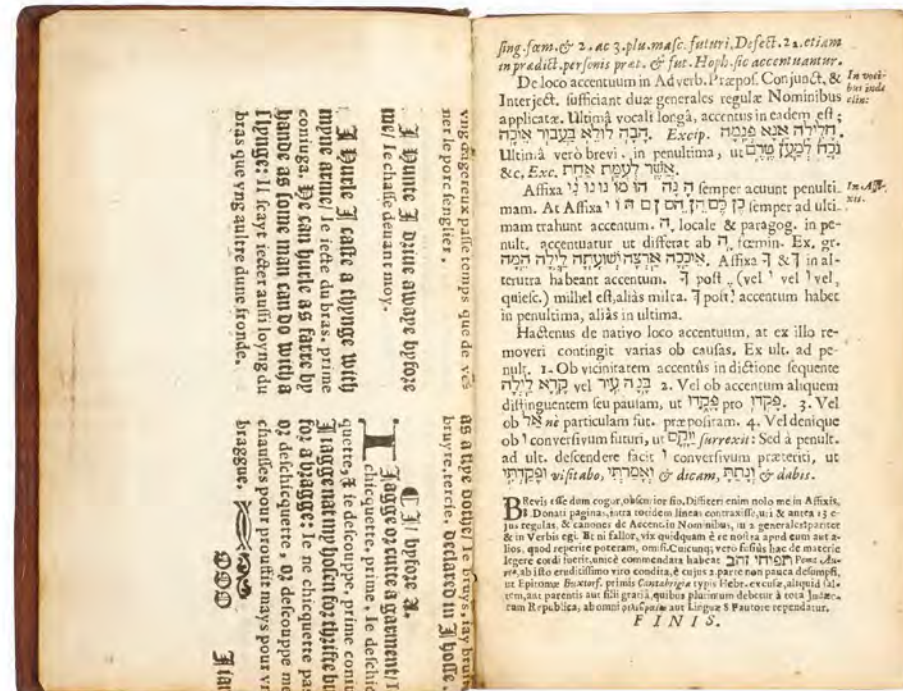 vng dãgereux passe temps que de ves
ner le porc senglier.
I Hunte I driue awaye byfore
me/ Ie chasse deuant moy.
I Hurle I caste a thynge with
myne arme/ Ie iecte du bras. prime
coniuga. He can hurle as farre by
hande as some man can do with a
slynge: Il scayt iecter aussi loyng du
bras que vng aultre dune fronde.
as a tipe dothe/ Ie bruys, iay
bruyre, tercie. declared in I hosse.
¶ I/ byfore A.
I Iagge or cutte a garment/
chicquette, prime. Ie
quette, & ie descouppe, prime
I iagge nat my hosen for thrifte
for a bragge: Ie ne chicquette
or deschicquette, or descouppe
chausses pour prouffit mays pour
braggue.
sing. fœm. & 2. ac 3. plu. masc. futuri. Defect. 22. etiam
in prædict. personis præt. & fut. Hoph. sic accentuantur.
De loco accentuum in Adverb. Præpos. Conjunct. &
Interject. sufficiant duæ generales regulæ Nominibus
applicatæ. Ultimâ vocali longâ, accentus in eadem est;
חֲלִילָה אָנָּא פְּנִימָה. Excip. הָבָה לוּלֵא בַּעֲבוּר אֵיכָה.
Ultimâ verò brevi, in penultima, ut נֹכַח לְמַעַן טֶרֶם
&c, Exc. אֲשֶׁר לְעֻמַּת אַחַת.
In voci-
bus inde
clin:
Affixa הָ נָה הוּ מוֹ נוּ נִי semper acuunt penulti-
mam. At Affixa כֶן כֶם הֶן הֶם ן ם semper ad ulti-
mam trahunt accentum. ה locale & paragog. in pe-
nult. accentuatur ut differat ab ה fœmin. Ex. gr.
אֵיכָכָה אַרְצָה וִישׁוּעָתָה לַיְלָה הֵמָּה. Affixa ך & ך in al-
terutra habeant accentum. ך post (vel י vel ו vel,
quiesc.) milhel est, aliàs milra. ך post accentum habet
in penultima, aliàs in ultima.
In Aff-
xis.
Hactenus de nativo loco accentuum, at ex illo re-
moveri contingit varias ob causas. Ex ult. ad pe-
nult. 1. Ob vicinitatem accentûs in dictione sequente
קָרָא לַיְלָה vel בָּנָה עִיר 2. Vel ob accentum aliquem
distinguentem seu pausam, ut פָּקָדוּ pro פָּקְדוּ. 3. Vel
ob אַל ne particulam fut. præpositam. 4. Vel denique
ob ו conversivum futuri, ut וַיָּקָם surrexit: Sed à penult.
ad ult. descendere facit ו conversivum præteriti, ut
וּפָקַדְתִּי visitabo, וְאָמַרְתִּי & dicam, וְנָתַתָּ & dabis.
BRevis esse dum cogor, obscurior fio. Diffiteri enim nolo me in Affixis,
Donati paginas, intra totidem lineas contraxisse, uti & antea 13 e-
jus regulas, & canones de Accent. in Nominibus, in 2 generales: pariter
& in Verbis egi. Et ni fallor, vix quidquam è re nostra apud eum aut a-
lios, quod reperire poteram, omisi. Cuicunq; vero fusius hac de materie
legere cordi fuerit, unicè commendata habeat תפוחי זהב Poma Au-
rea, ab isto eruditissimo viro condita, è cujus 2 parte non pauca desumpsi,
ut Epitome Buxtorf. primis Cantabrigiæ typis Hebr. excusæ, aliquid sal-
tem, aut parentis aut filii gratiâ, quibus plurimum debetur à tota Judæo-
rum Republica, ab omni aut Linguæ S Fautore rependatur.
FINIS.